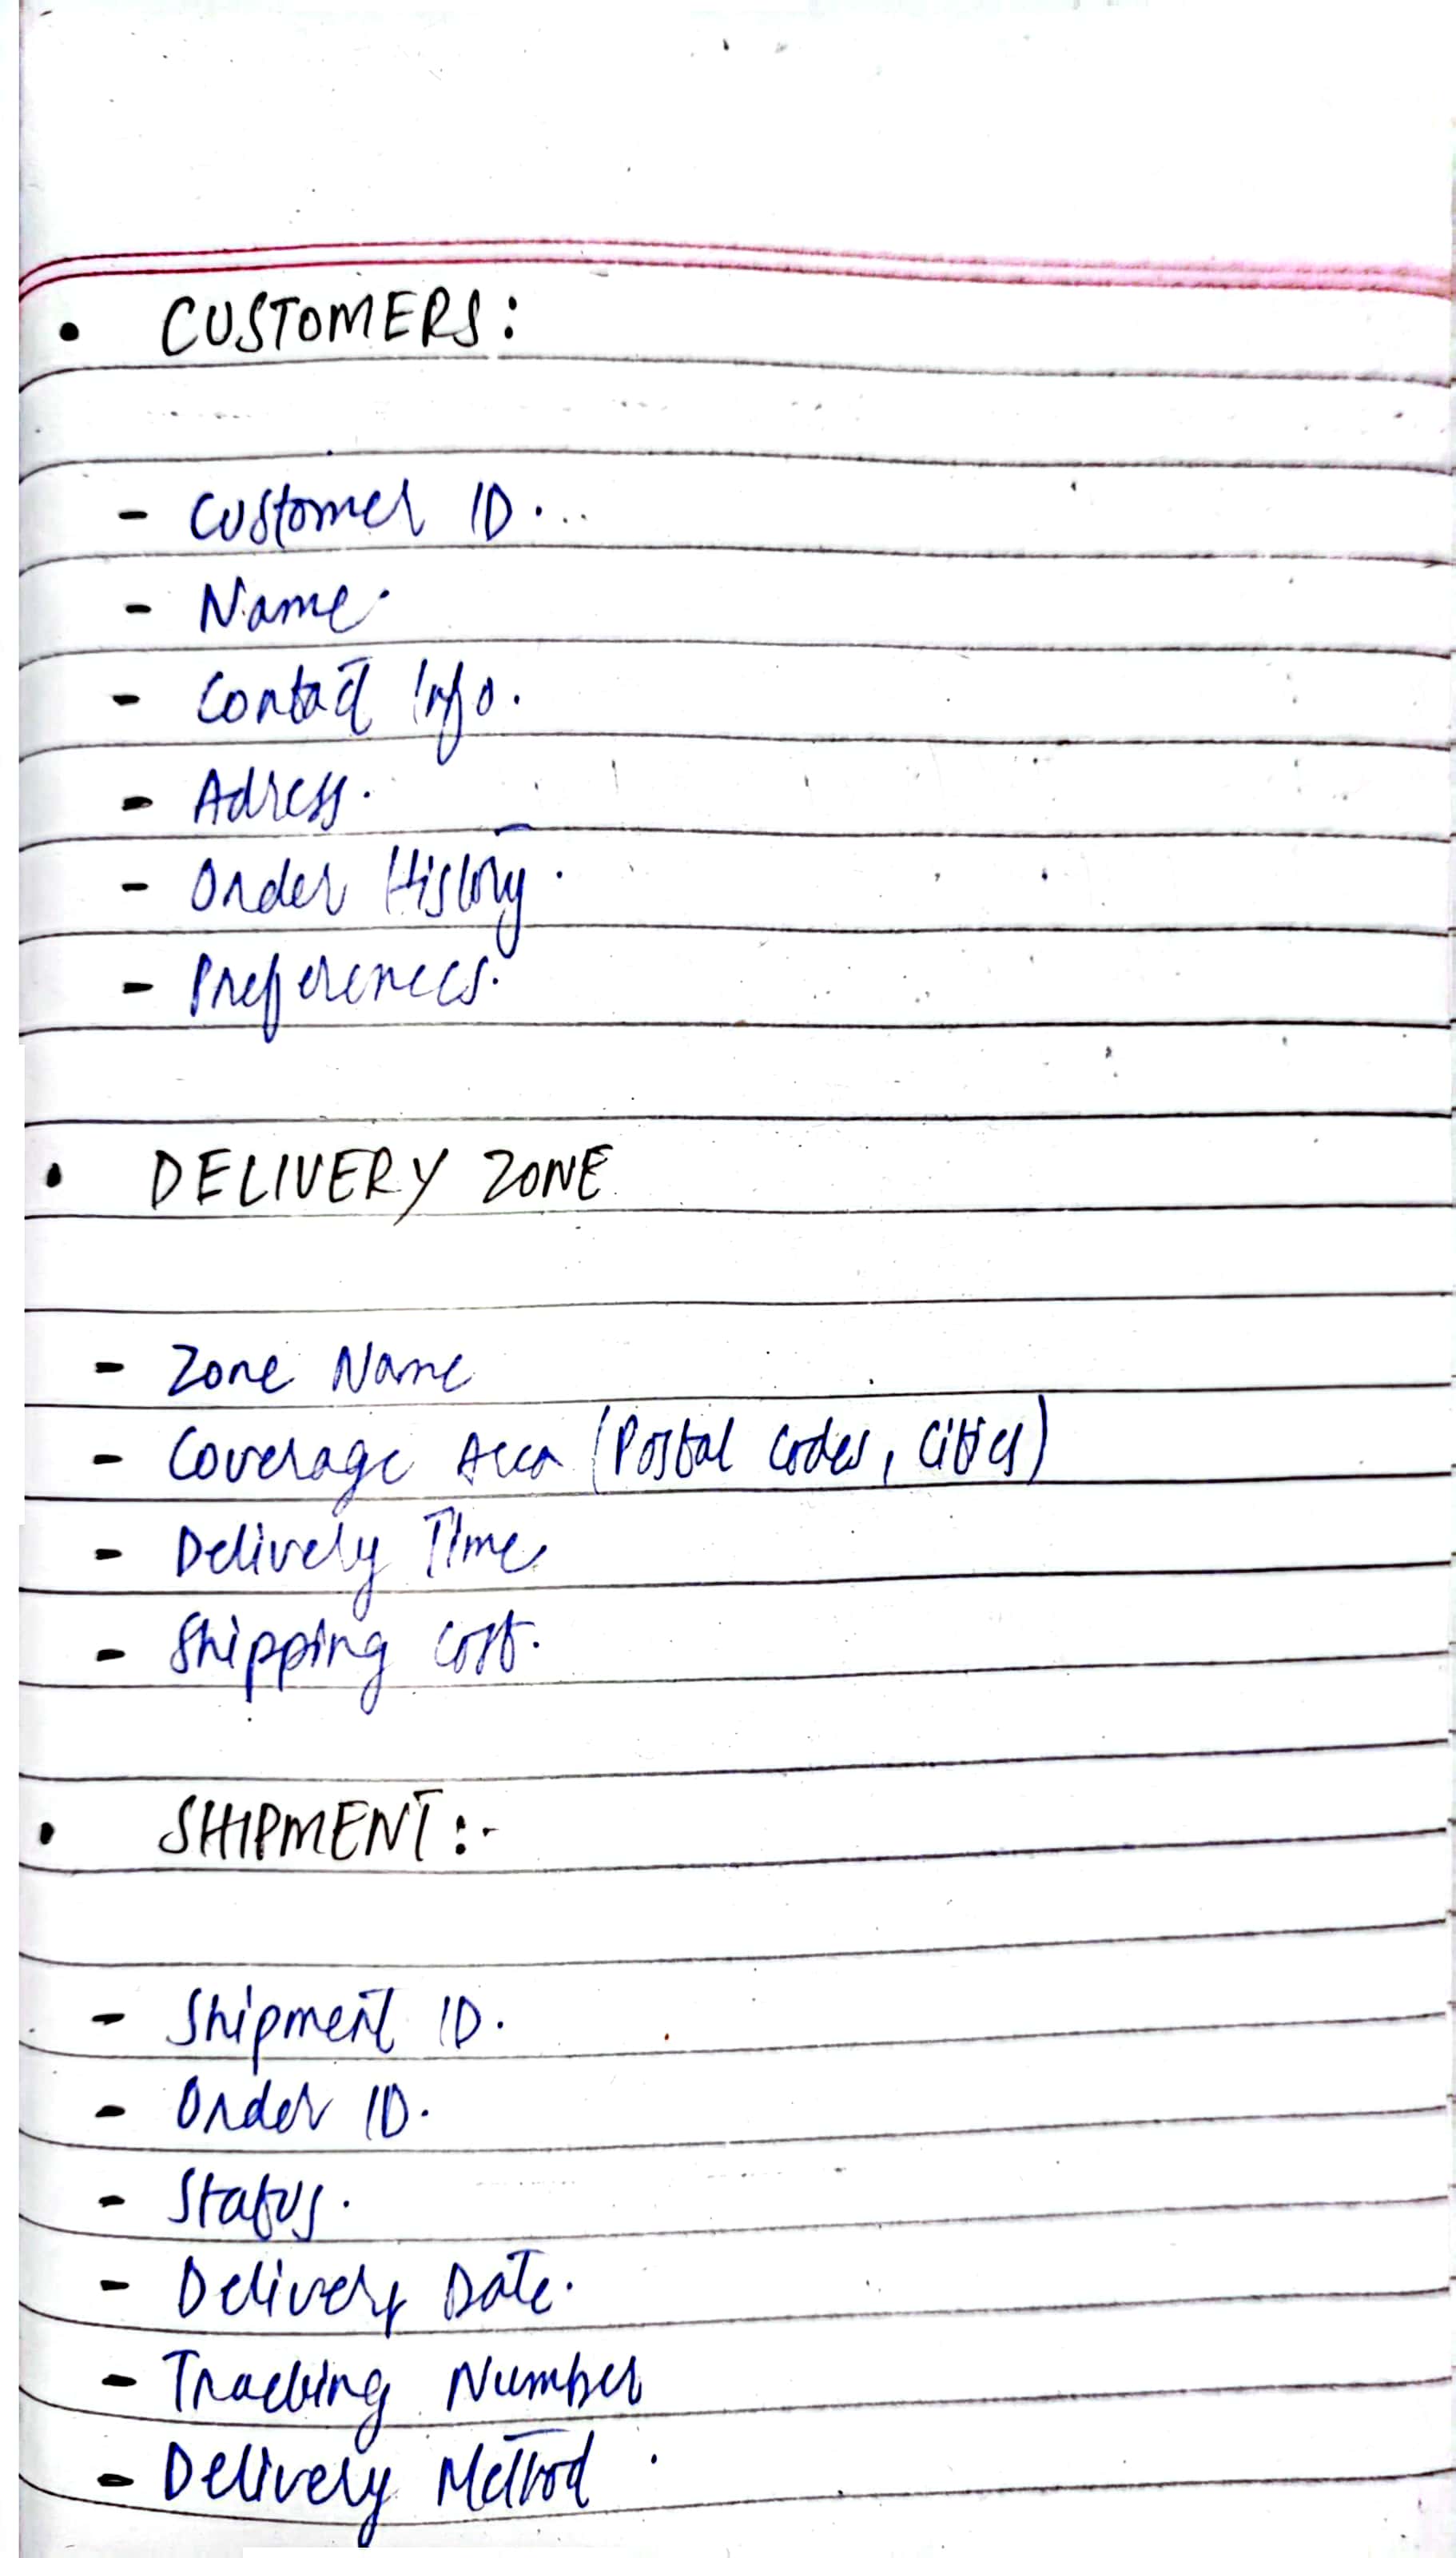 • CUSTOMERS:
- Customer ID.
- Name.
- Contact Info.
- Adress.
- Order History.
- Preferences.
• DELIVERY ZONE
- Zone Name
- Coverage Area (Postal Codes, Cities)
- Delivery Time
- Shipping Cost.
• SHIPMENT:-
- Shipment ID.
- Order ID.
- Status.
- Delivery Date.
- Tracking Number
- Delivery Method.